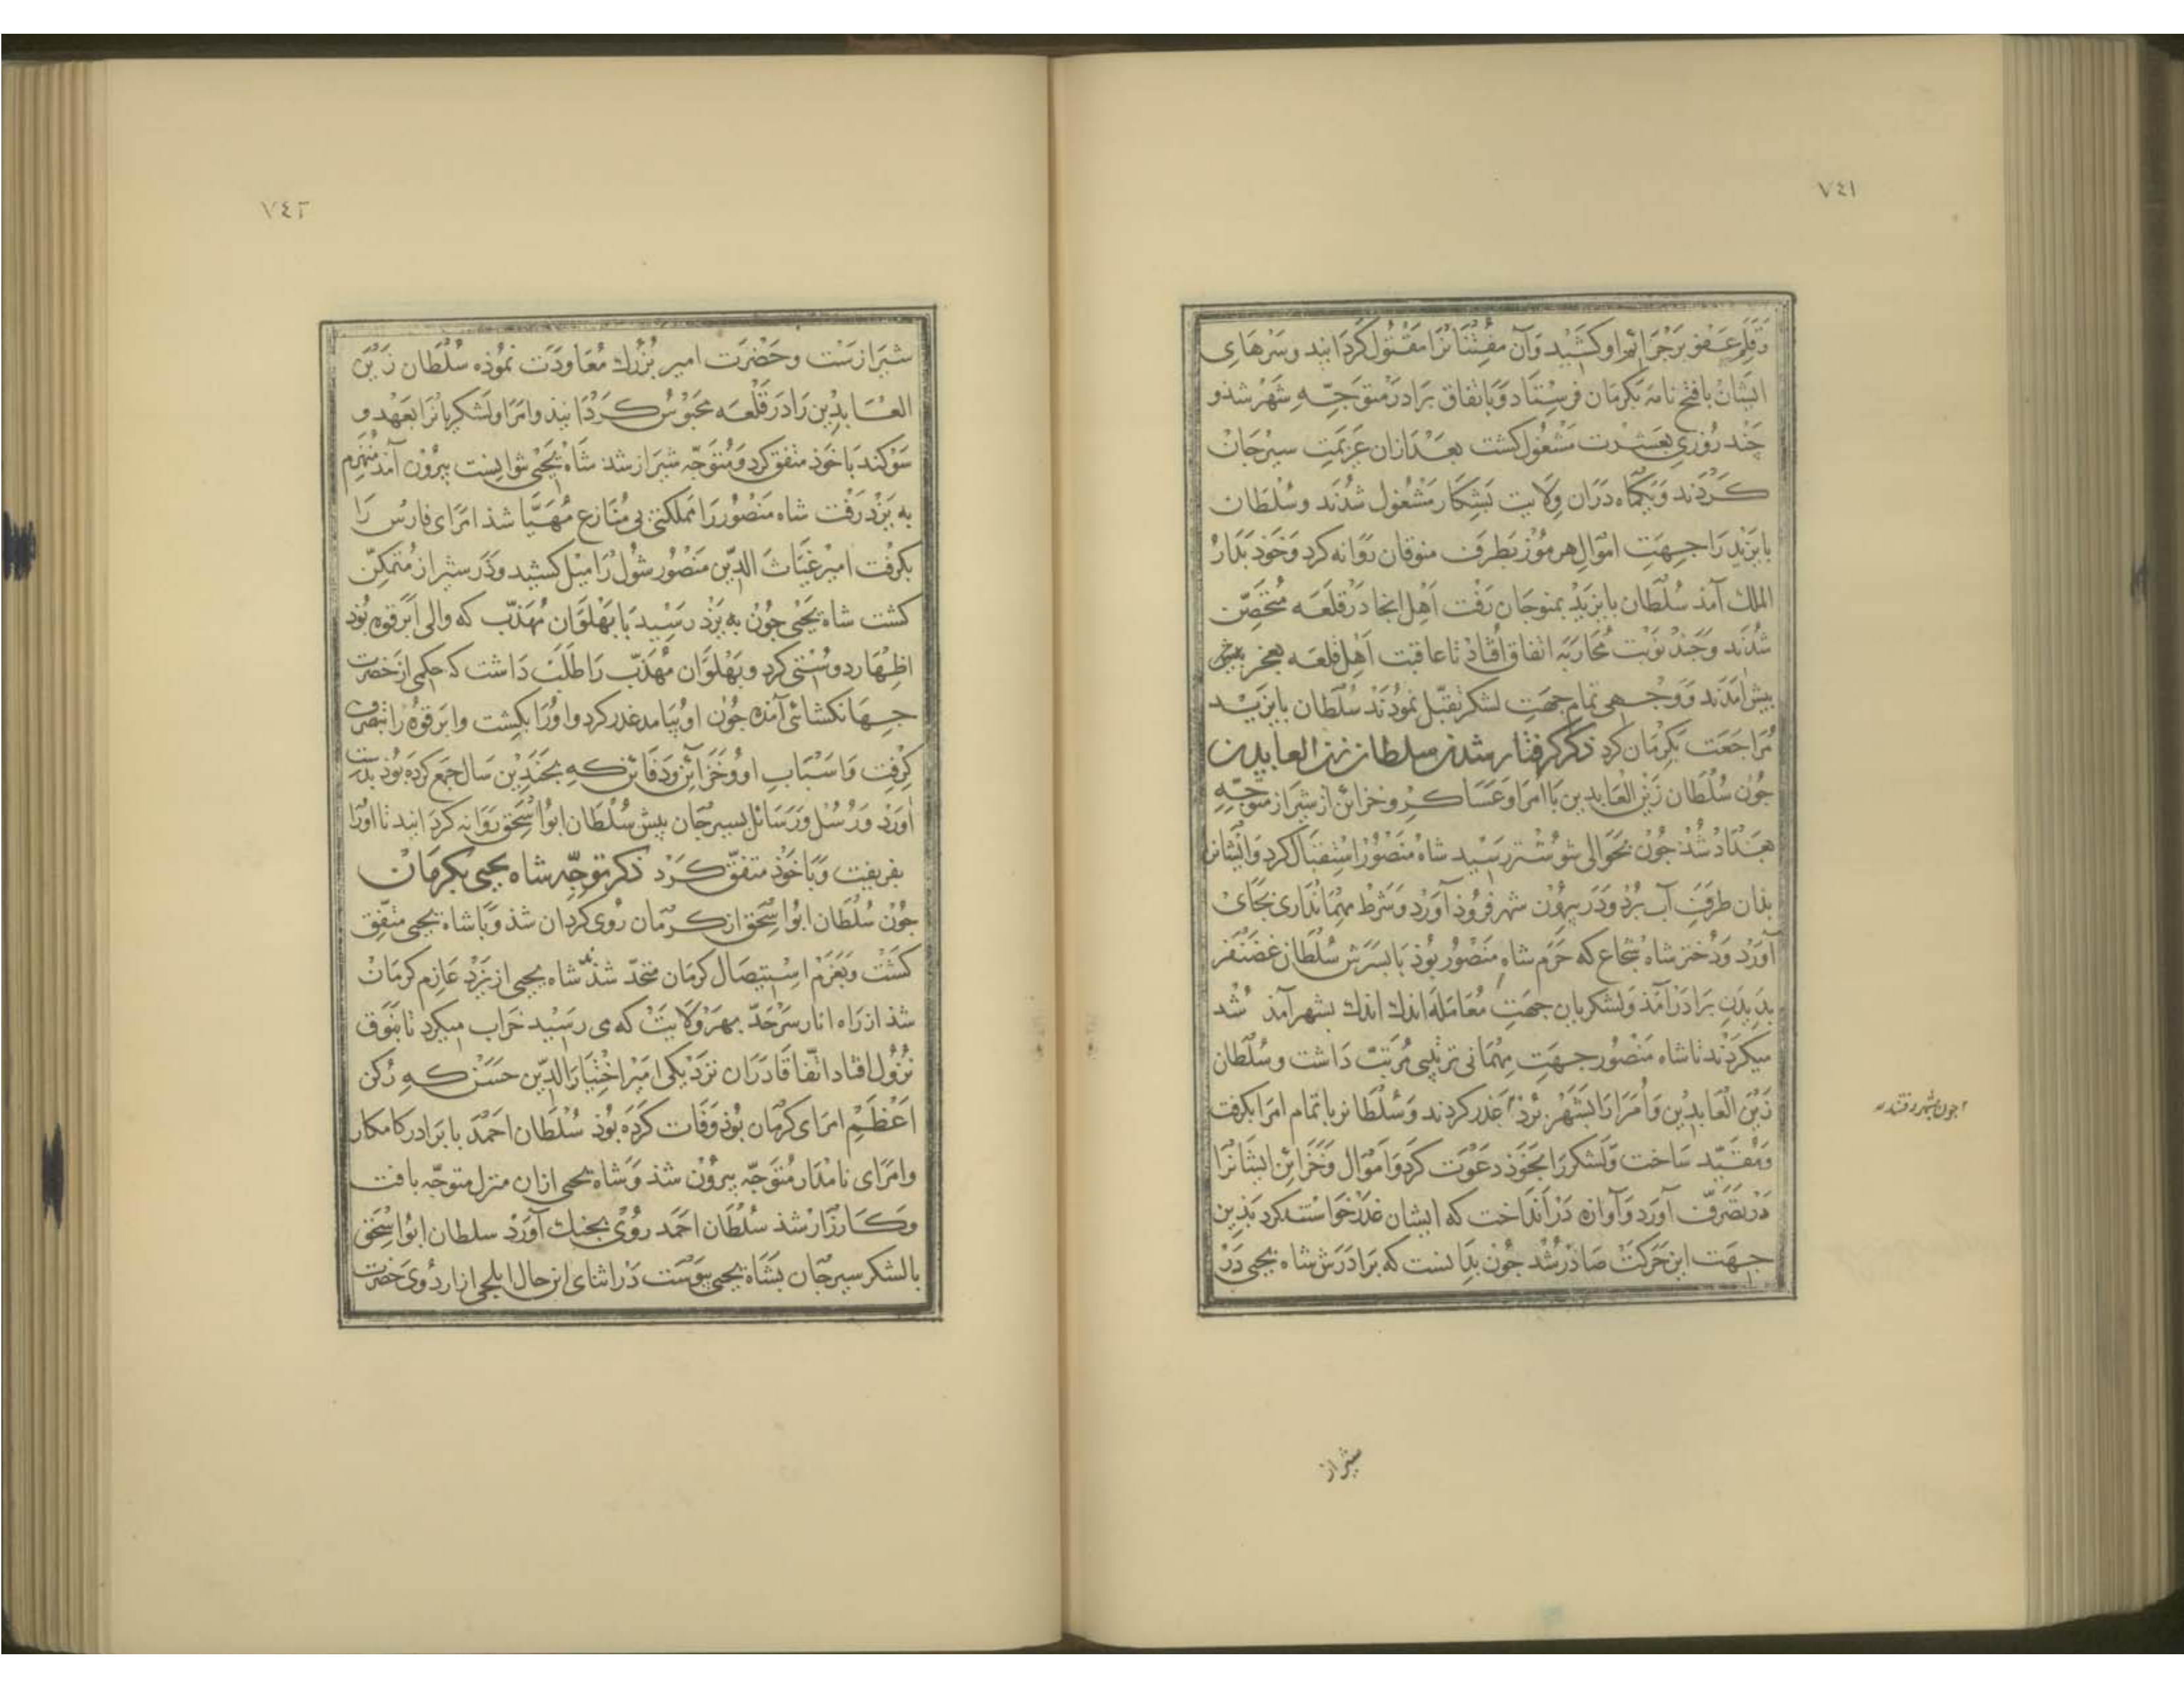 ٧٤١
وقلم عفو بر جرائم او کشید و آن مفتنانرا مقتول کردانید و سرهای
ایشان با فتح نامه بکرمان فرستاد و باتفاق برادر متوجه شهر شذ و
جند روزی بعشرت مشغول کشت بعد ازان عزیمت سیرجان
کردند و یکماه دران ولایت بشکار مشغول شدند و سلطان
بایزید را جهت اموال هرموز بطرف منوقان روانه کرد و خوذ بدار
الملك آمذ سلطان بایزید بمنوجان رفت اهل انجا در قلعه متحصن
شدند و جند نوبت محاربه اتفاق افتاد تا عاقبت اهل قلعه بعجز
بیش امدند و وجهی تمام جهت لشکر تقبل نمودند سلطان بایزید
مراجعت بکرمان کرد ذکر کرفتار شدن سلطان زین العابدین
جون سلطان زین العابدین با امرا و عساکر و خزائن از شیراز متوجه
بغداد شد جون بحوالی شوشتر رسید شاه منصور استقبال کرد و ایشانرا
بدان طرف آب برد و در بیرون شهر فروذ آورد و شرط مهمانداری بجای
آورد و دختر شاه شجاع که حرم شاه منصور بوذ با بسرش سلطان غضنفر
بدیدن برادر آمذ و لشکریان جهت معامله اندك اندك بشهر آمذ شد
میکردند تا شاه منصور جهت مهمانی ترتیبی مرتب داشت و سلطان
زین العابدین و امرا را بشهر برد غدر کردند و سلطانرا با تمام امرا بکرفت
ومقید ساخت و لشکر را بخوذ دعوت کرد و اموال و خزائن ایشانرا
در تصرف آورد و آوازه در انداخت که ایشان غدر خواستند کرد بذین
جهت این حرکت صادر شد جون بدانست که برادرش شاه یحیی در
جون بشهر رفتند
شیراز
٧٤٢
شیرازست و حضرت امیر بزرك معاودت نموذه سلطان زین
العابدین را در قلعه محبوس کردانید و امرا و لشکریانرا بعهد و
سوکند با خوذ متفق کرد و متوجه شیراز شد شاه یحیی نتوانست بیرون آمذ منهزم
به یزد رفت شاه منصور را مملکتی بی منازع مهیا شذ امرای فارس را
بکرفت امیر غیاث الدین منصور شول را میل کشید و در شیراز متمکن
کشت شاه یحیی جون به یزد رسید با بهلوان مهذب که والی ابرقوه بود
اظهار دوستی کرد و بهلوان مهذب را طلب داشت که حکمی از حضرت
جهانکشائی آمذه جون او بیامد غدر کرد و اورا بکشت و ابرقوه را بتصرف
کرفت و اسباب او و خزائن و دفائن که بجندین سال جمع کرده بوذ بدست
آورد و رسل و رسائل بسیرجان بیش سلطان ابوا سحق روانه کردانید تا اورا
بفریفت و با خوذ متفق کرد ذکر توجه شاه یحیی بکرمان
جون سلطان ابوا سحق از کرمان روی کردان شذ و با شاه یحیی متفق
کشت و بعزم استیصال کرمان متحد شذند شاه یحیی از یزد عازم کرمان
شذ از راه انار سرحد بهر ولایت که می رسید خراب میکرد تا بفوق
نزول افتاد اتفاقا دران نزدیکی امیر اختیار الدین حسن که رکن
اعظم امرای کرمان بوذ وفات کرده بوذ سلطان احمد با برادر کامکار
وامرای نامدار متوجه بیرون شذ و شاه یحیی ازان منزل متوجه بافت
وکارزار شذ سلطان احمد روی بجنك آورد سلطان ابوا سحق
با لشکر سیرجان بشاه یحیی بیوست در اثنای این حال ایلچی از اردوی حضرت